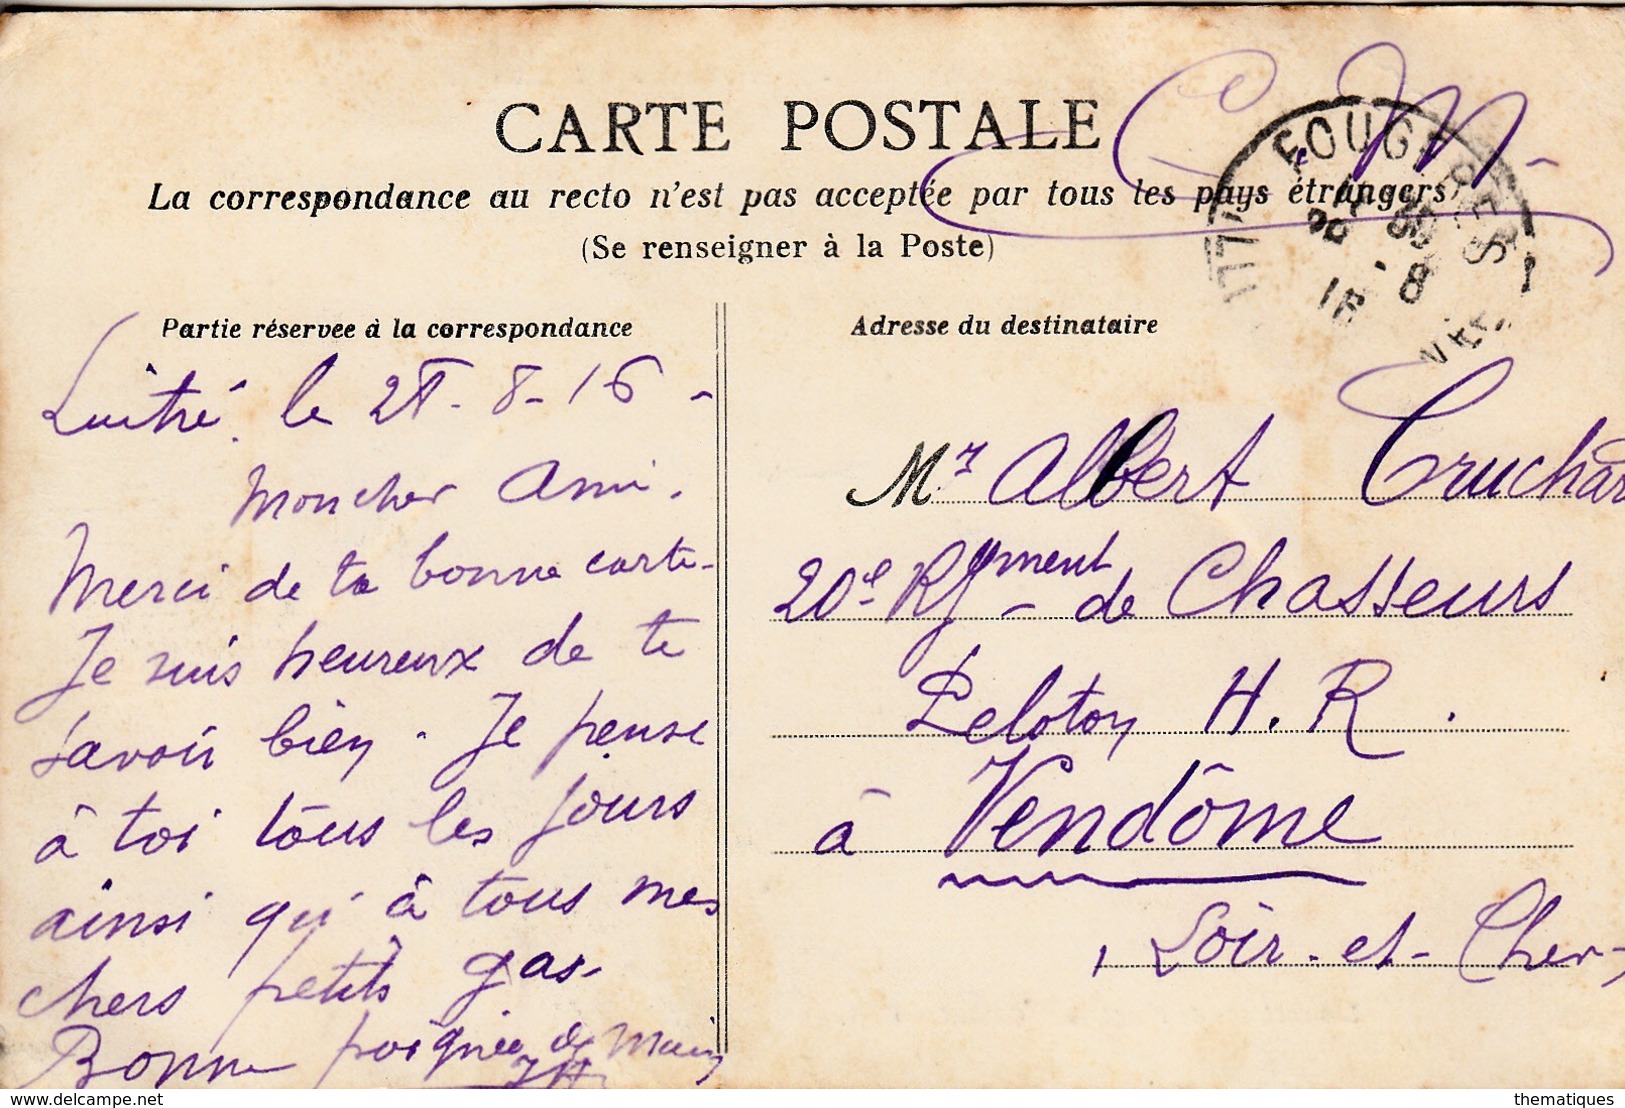 C. M.
CARTE POSTALE
La correspondance au recto n'est pas acceptée par tous les pays étrangers
(Se renseigner à la Poste)
FOUGERES
16 8
Partie réservee à la correspondance
Luitré le 28-8-16-
Moncher Ami.
Merci de ta bonne carte-
Je suis heureux de te
savoir bien. Je pense
à toi tous les jours
ainsi qu'à tous mes
chers petits gas-
Bonne poignée de main
Adresse du destinataire
Mr Albert Cruchar
20e Rgment de Chasseurs
Peloton H. R.
à Vendôme
Loir-et-Cher-
delcampe.net
thematiques